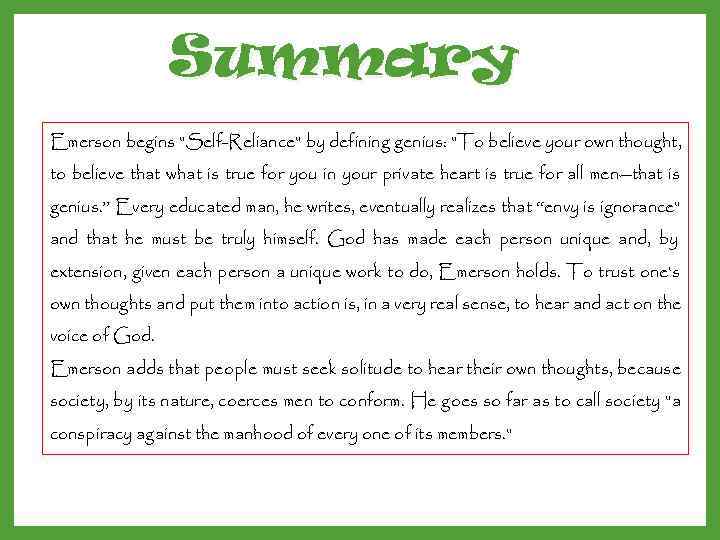 Summary
Emerson begins "Self-Reliance" by defining genius: "To believe your own thought,
to believe that what is true for you in your private heart is true for all men—that is
genius." Every educated man, he writes, eventually realizes that “envy is ignorance"
and that he must be truly himself. God has made each person unique and, by
extension, given each person a unique work to do, Emerson holds. To trust one's
own thoughts and put them into action is, in a very real sense, to hear and act on the
voice of God.
Emerson adds that people must seek solitude to hear their own thoughts, because
society, by its nature, coerces men to conform. He goes so far as to call society "a
conspiracy against the manhood of every one of its members."